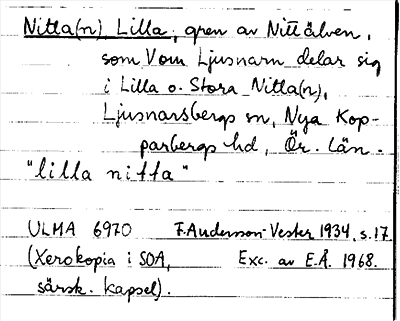 Nitta(n) Lilla, gren av Nittälven,
som vom Ljusnarn delar sig
i Lilla o. Stora Nitta(n),
Ljusnarsbergs sn, Nya Kop-
parbergs hd, Ör. län.
"lilla nitta"
ULMA 6970 F. Andersson-Vester 1934, s. 17
(Xerokopia i SOA, Exc. av E.Å. 1968.
särsk. kapsel).